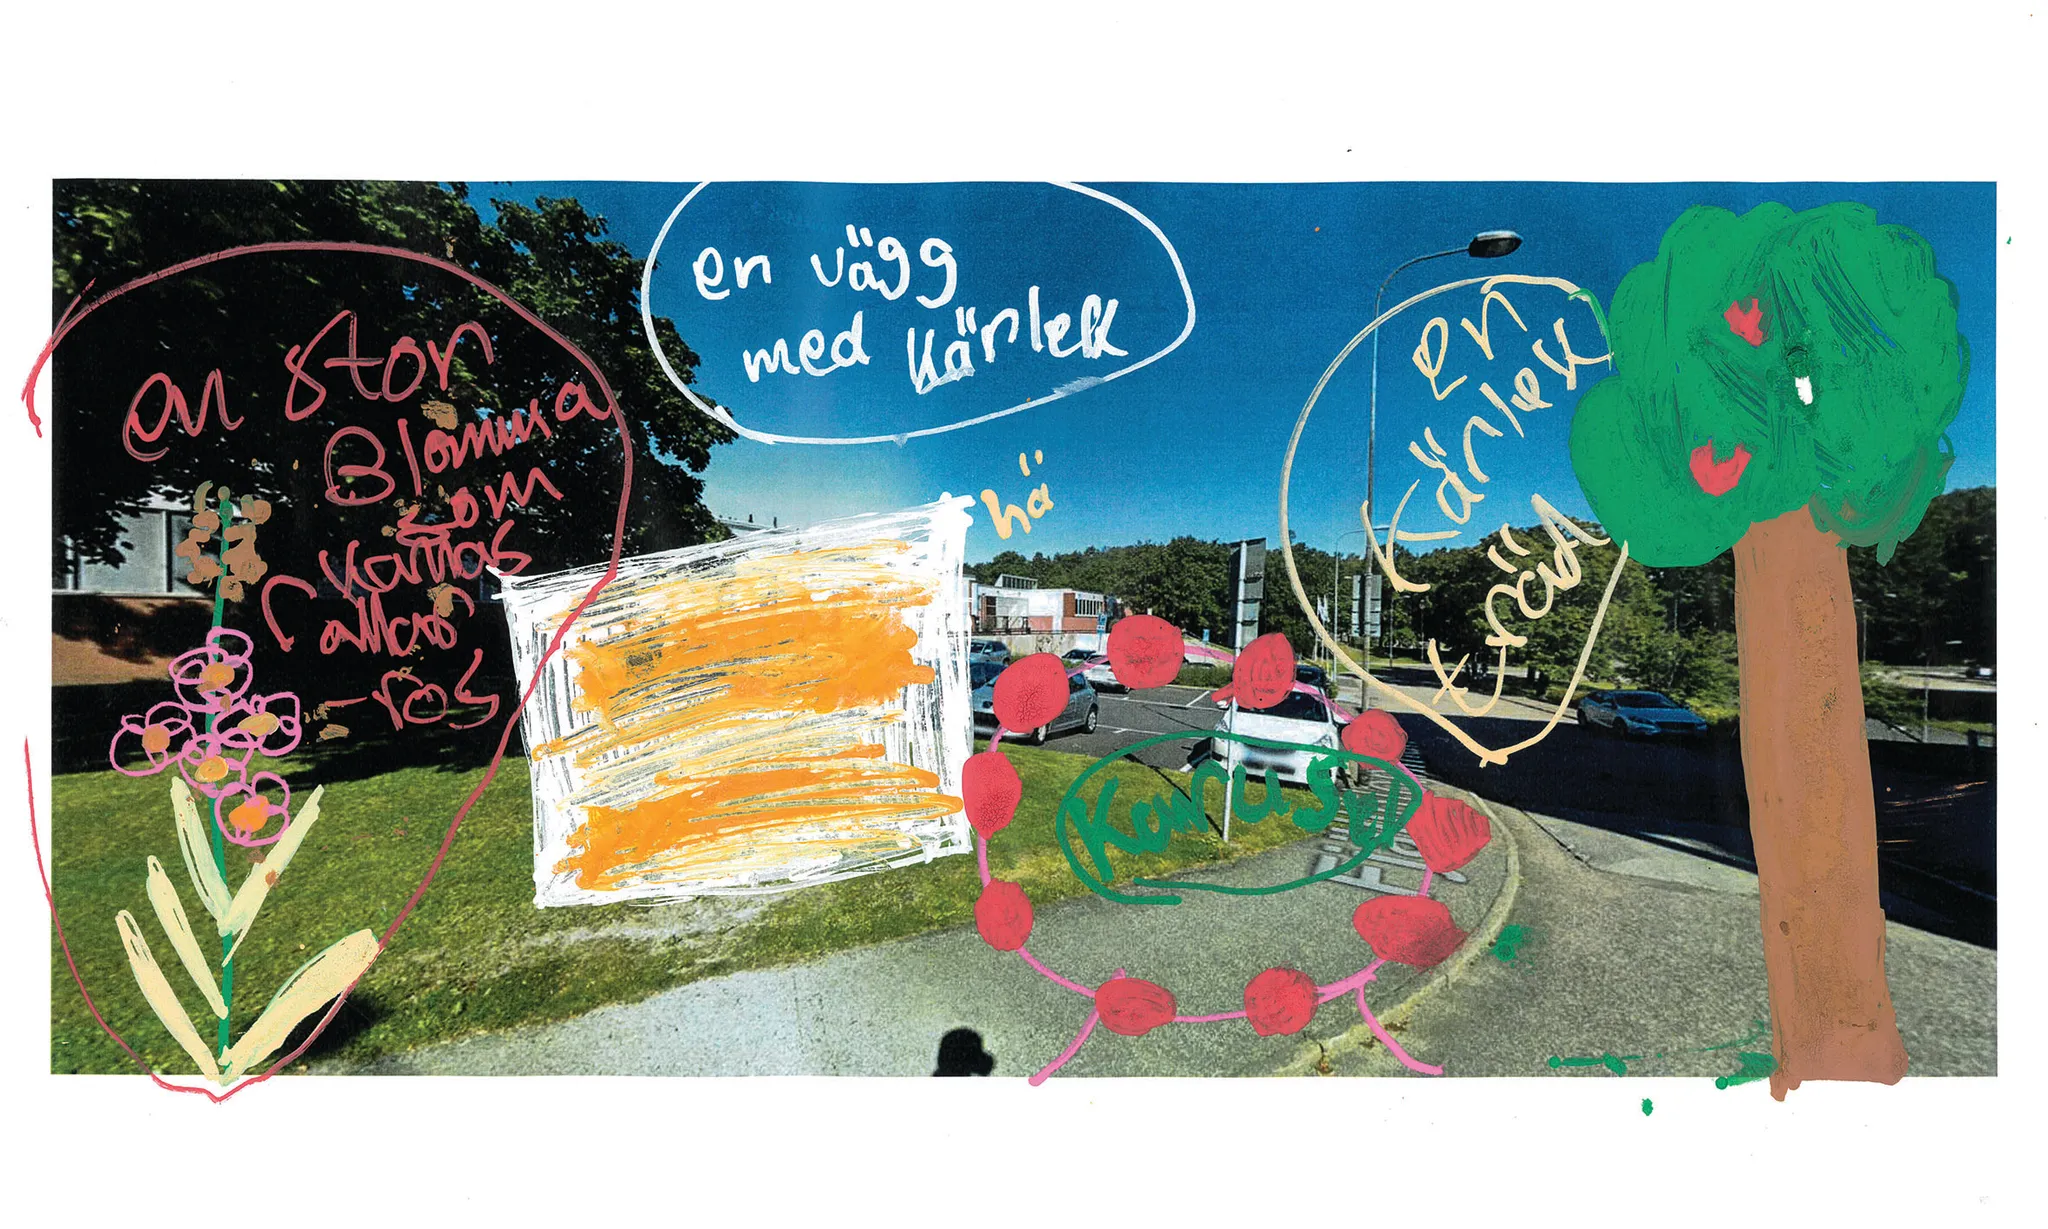 en stor
Blomma
som
Kallas
rallar
-ros
en vägg
med Kärlek
hä
en
Kärlek
träd